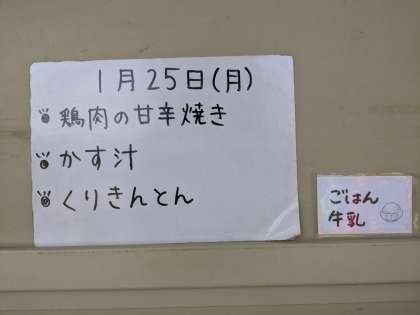 1月25日(月)
鶏肉の甘辛焼き
かす汁
くりきんとん
ごはん
牛乳